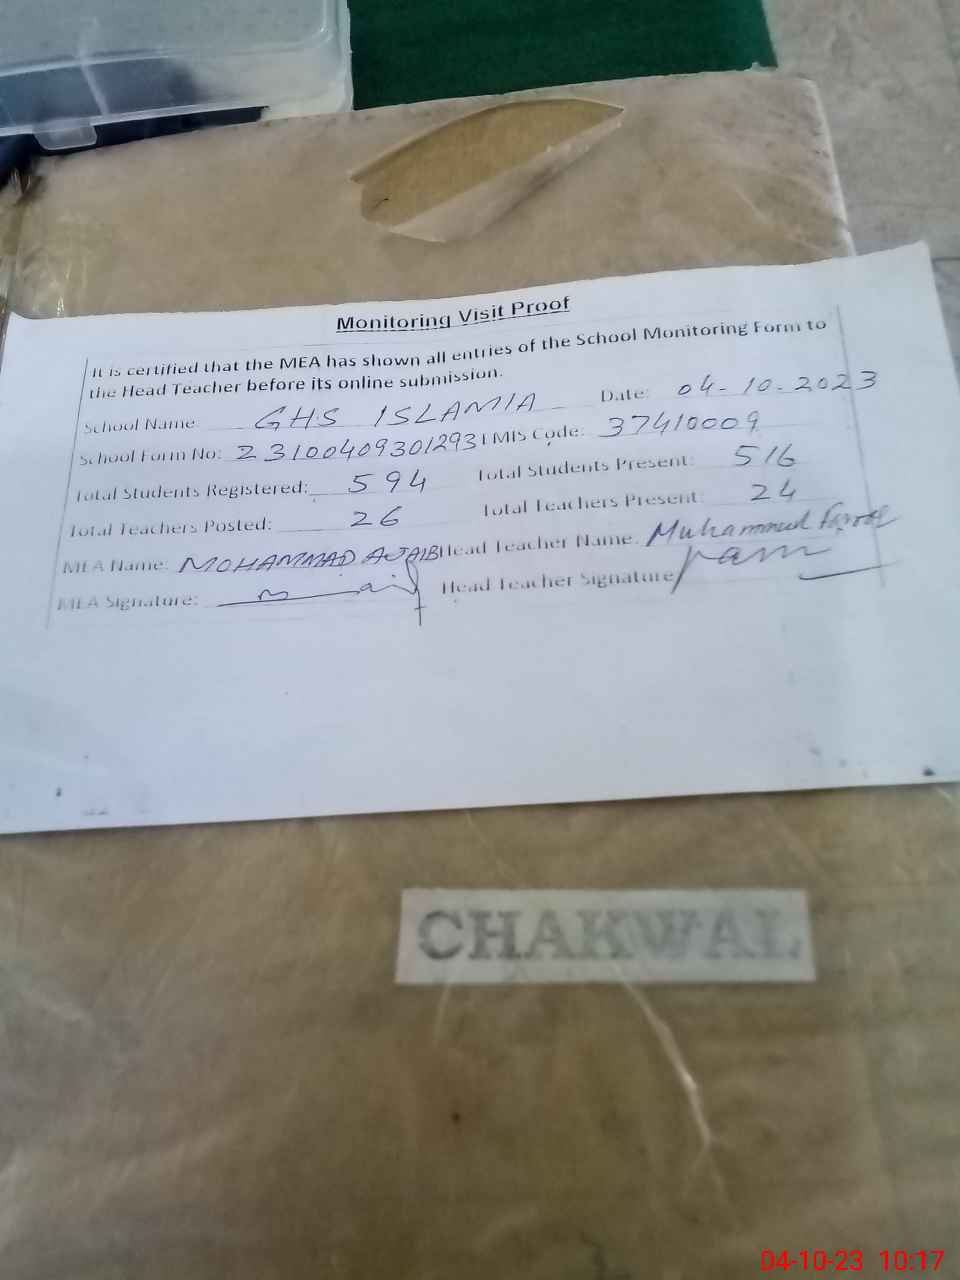 Monitoring Visit Proof
It is certified that the MEA has shown all entries of the School Monitoring Form to
the Head Teacher before its online submission.
School Name: GHS ISLAMIA Date: 04-10-2023
School Form No: 231004093012931 EMIS Code: 37410009
Total Students Registered: 594 Total Students Present: 516
Total Teachers Posted: 26 Total Teachers Present: 24
MEA Name: MOHAMMAD AJAIB Head Teacher Name: Muhammad Farooq
MEA Signature: Head Teacher Signature
CHAKWAL
04-10-23 10:17